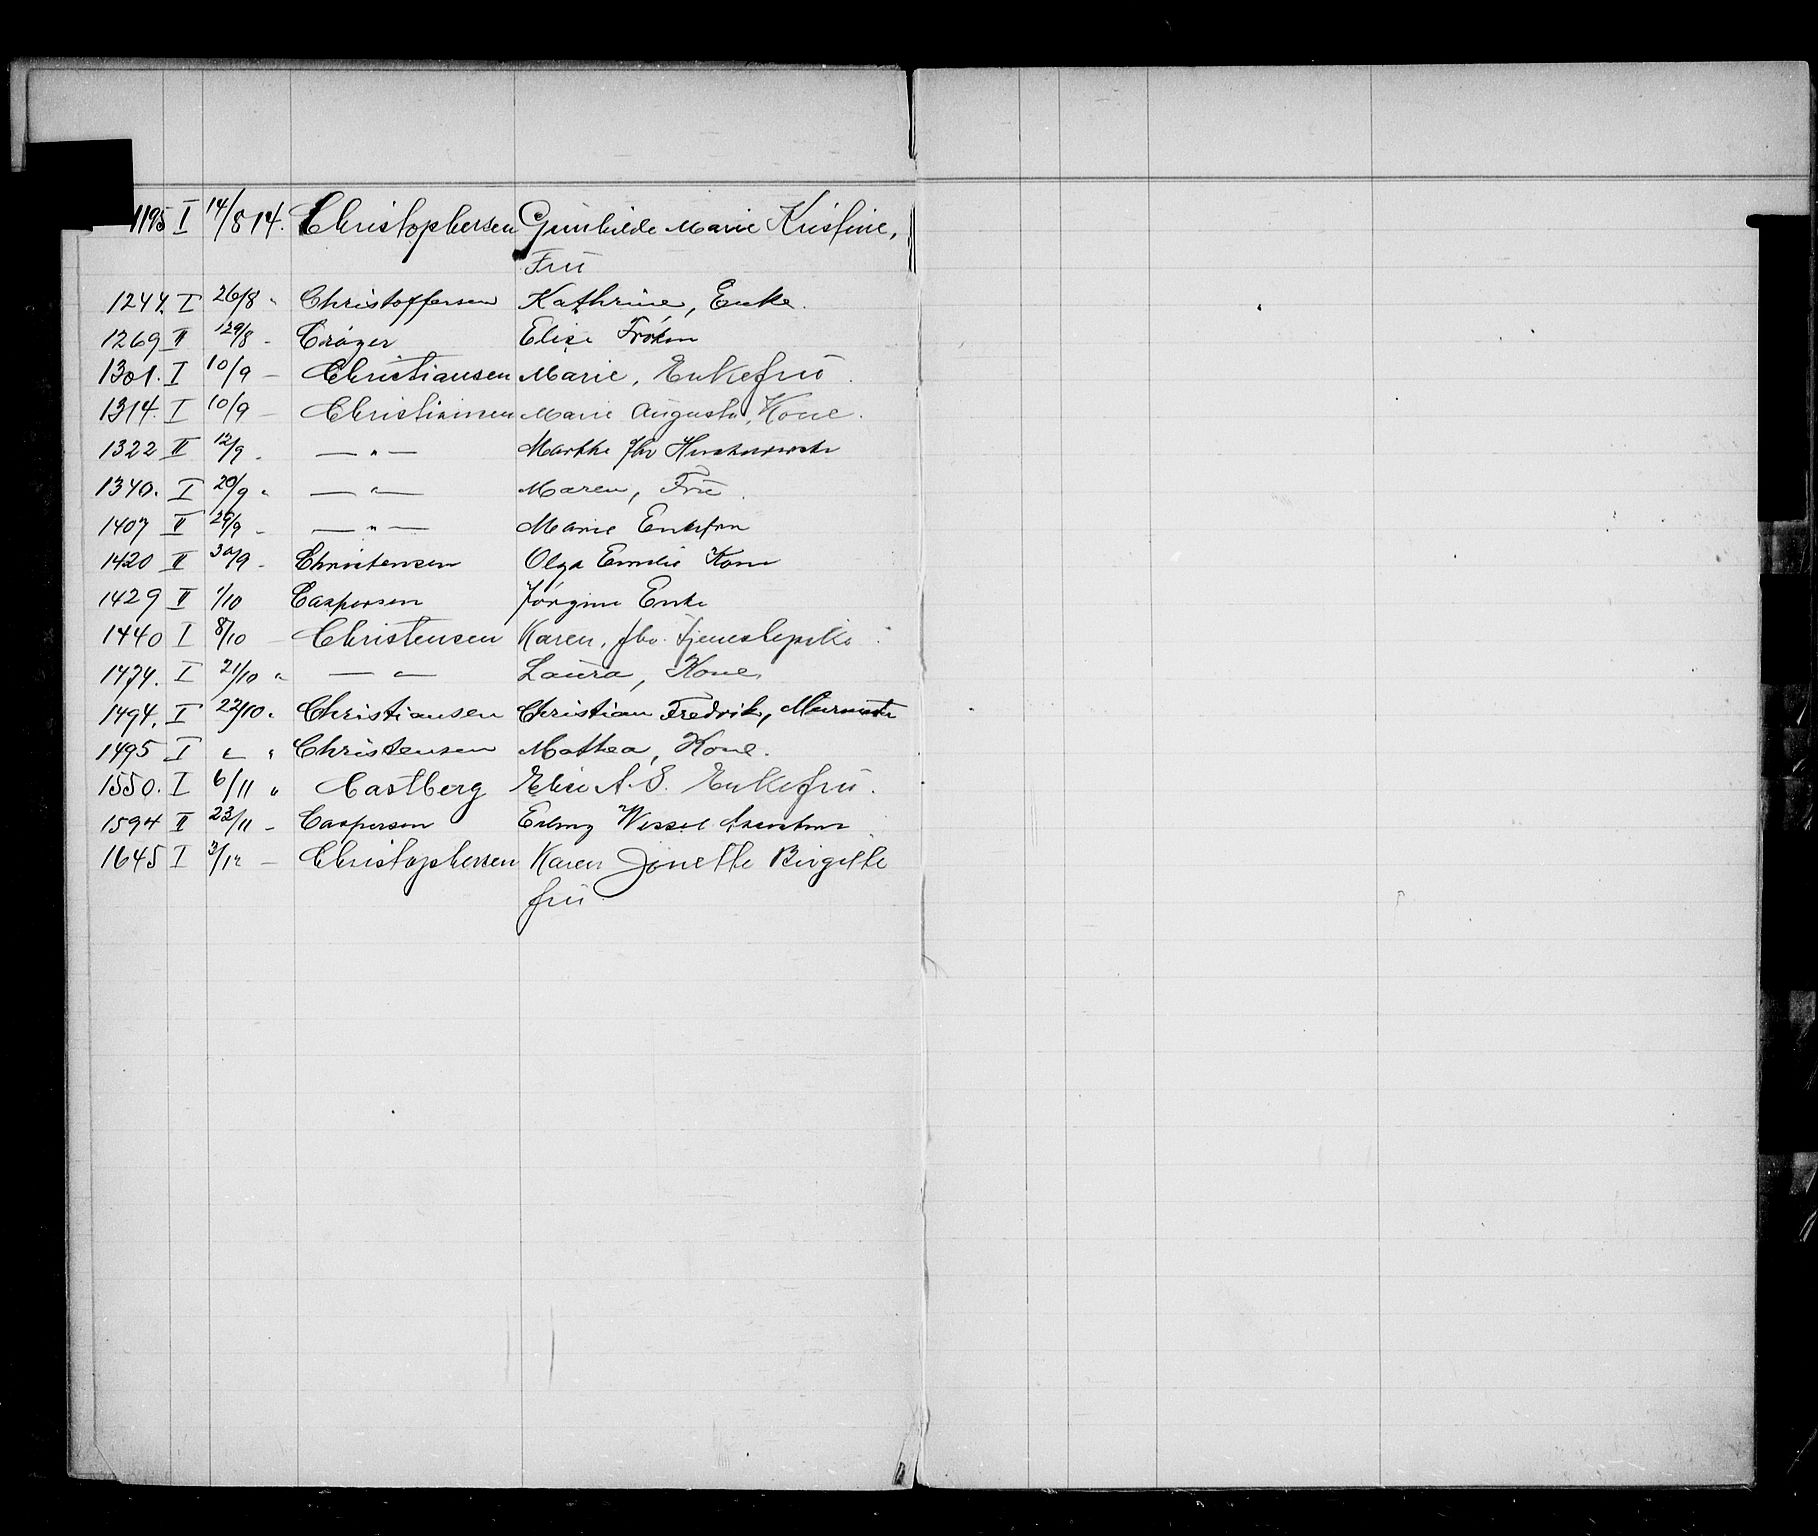 1195 I 14/8 14. Christophersen Gunhilde Marie Kristine,
Frü
1244. I 26/8 " Christoffersen Kathrine, Enke.
1269 II 29/8 - Crøger Elise Frøken
1301. I 10/9 — Christiansen Marie, Enkefrü.
1314. I 10/9 — Christiansen Marie Augusta, Kone.
1322 II 12/9 - — " — Marthe fhv
1340. I 20/9 " — " — Maren, Frü.
1407 II 29/9 - — " — Marie Enkefru
1420 II 30/9 - Christensen Olga Emilie Kone
1429 II 1/10 Caspersen Jørgine Enke
1440 I 8/10 — Christensen Karen, fhv. Tjenestepike.
1474. I 21/10 " — " — Laüra, Kone.
1494. I 22/10 " Christiansen Christian Fredrik, Murmester
1495 I " " Christensen Mathea, Kone.
1550. I 6/11 " Castberg Elise A. S. Enkefrü.
1594 II 23/11 - Caspersen Erling Wessel
1645 I 3/12 — Christophersen Karen Jonette Birgitte
frü